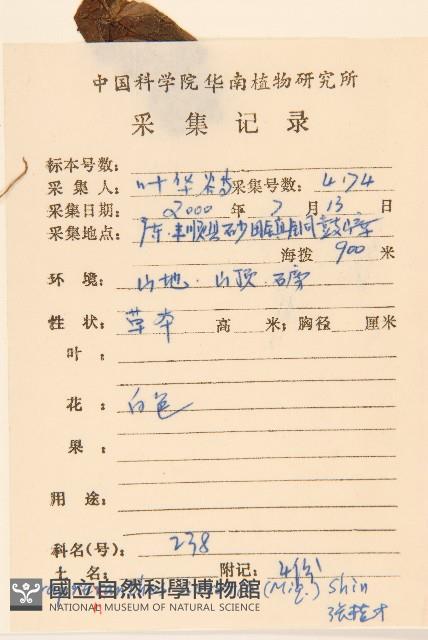 中国科学院华南植物研究所
采集记录
标本号数:
采集人: 叶华谷 采集号数: 4174
采集日期: 2000 年 7 月 13 日
采集地点: 广东.丰顺县砂田镇铜鼓嶂
海拨 900 米
环境: 山地.山顶.
性状: 草本 高 米; 胸径 厘米
叶:
花: 白色
果:
用途:
科名(号): 238
土名: 附记: 4份
(Miq.) Shih
張桂才
國立自然科學博物館
NATIONAL MUSEUM OF NATURAL SCIENCE